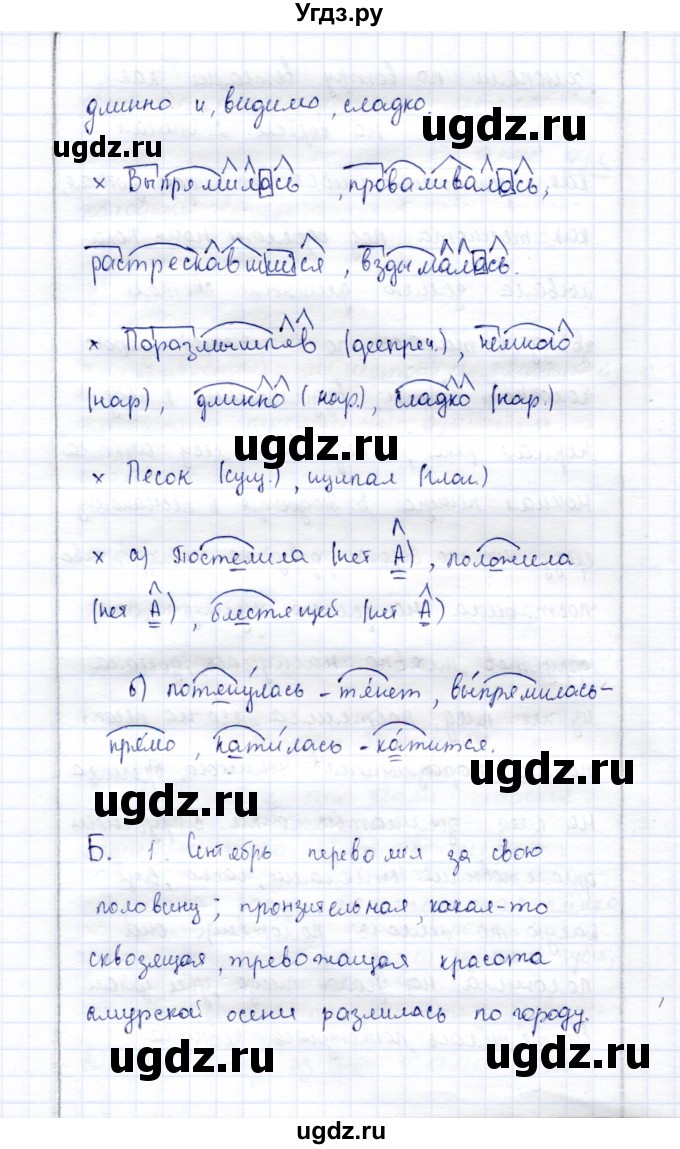 Угдз.ру
длинно и, видимо, сладко.
ugdz.ru
ugdz.ru
× Выпрямилась, проваливалась,
растрескавшийся, вздымалась.
× Поразмышляв (деепреч.), немного
(нар), длинно (нар), сладко (нар.)
ugdz.ru
ugdz.ru
× Песок (сущ.), щипал (глаг.)
× а) Постелила (нет А), положила
(нет А), блестящей (нет А)
б) потянулась - тянет, выпрямилась-
прямо, катилась - катится.
ugdz.ru
ugdz.ru
Б. 1. Сентябрь перевалил за свою
половину; пронзительная, какая-то
сквозящая, тревожащая красота
амурской осени разлилась по городу.
ugdz.ru
ugdz.ru
ugdz.ru